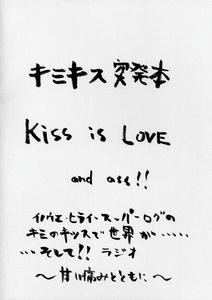 キミキス突発本
Kiss is LOVE
and ass!!
イノウエ・ヒライ・スーパーログの
キミのキッスで世界が・・・・・
・・・そして!! ラジオ
〜甘い痛みとともに〜